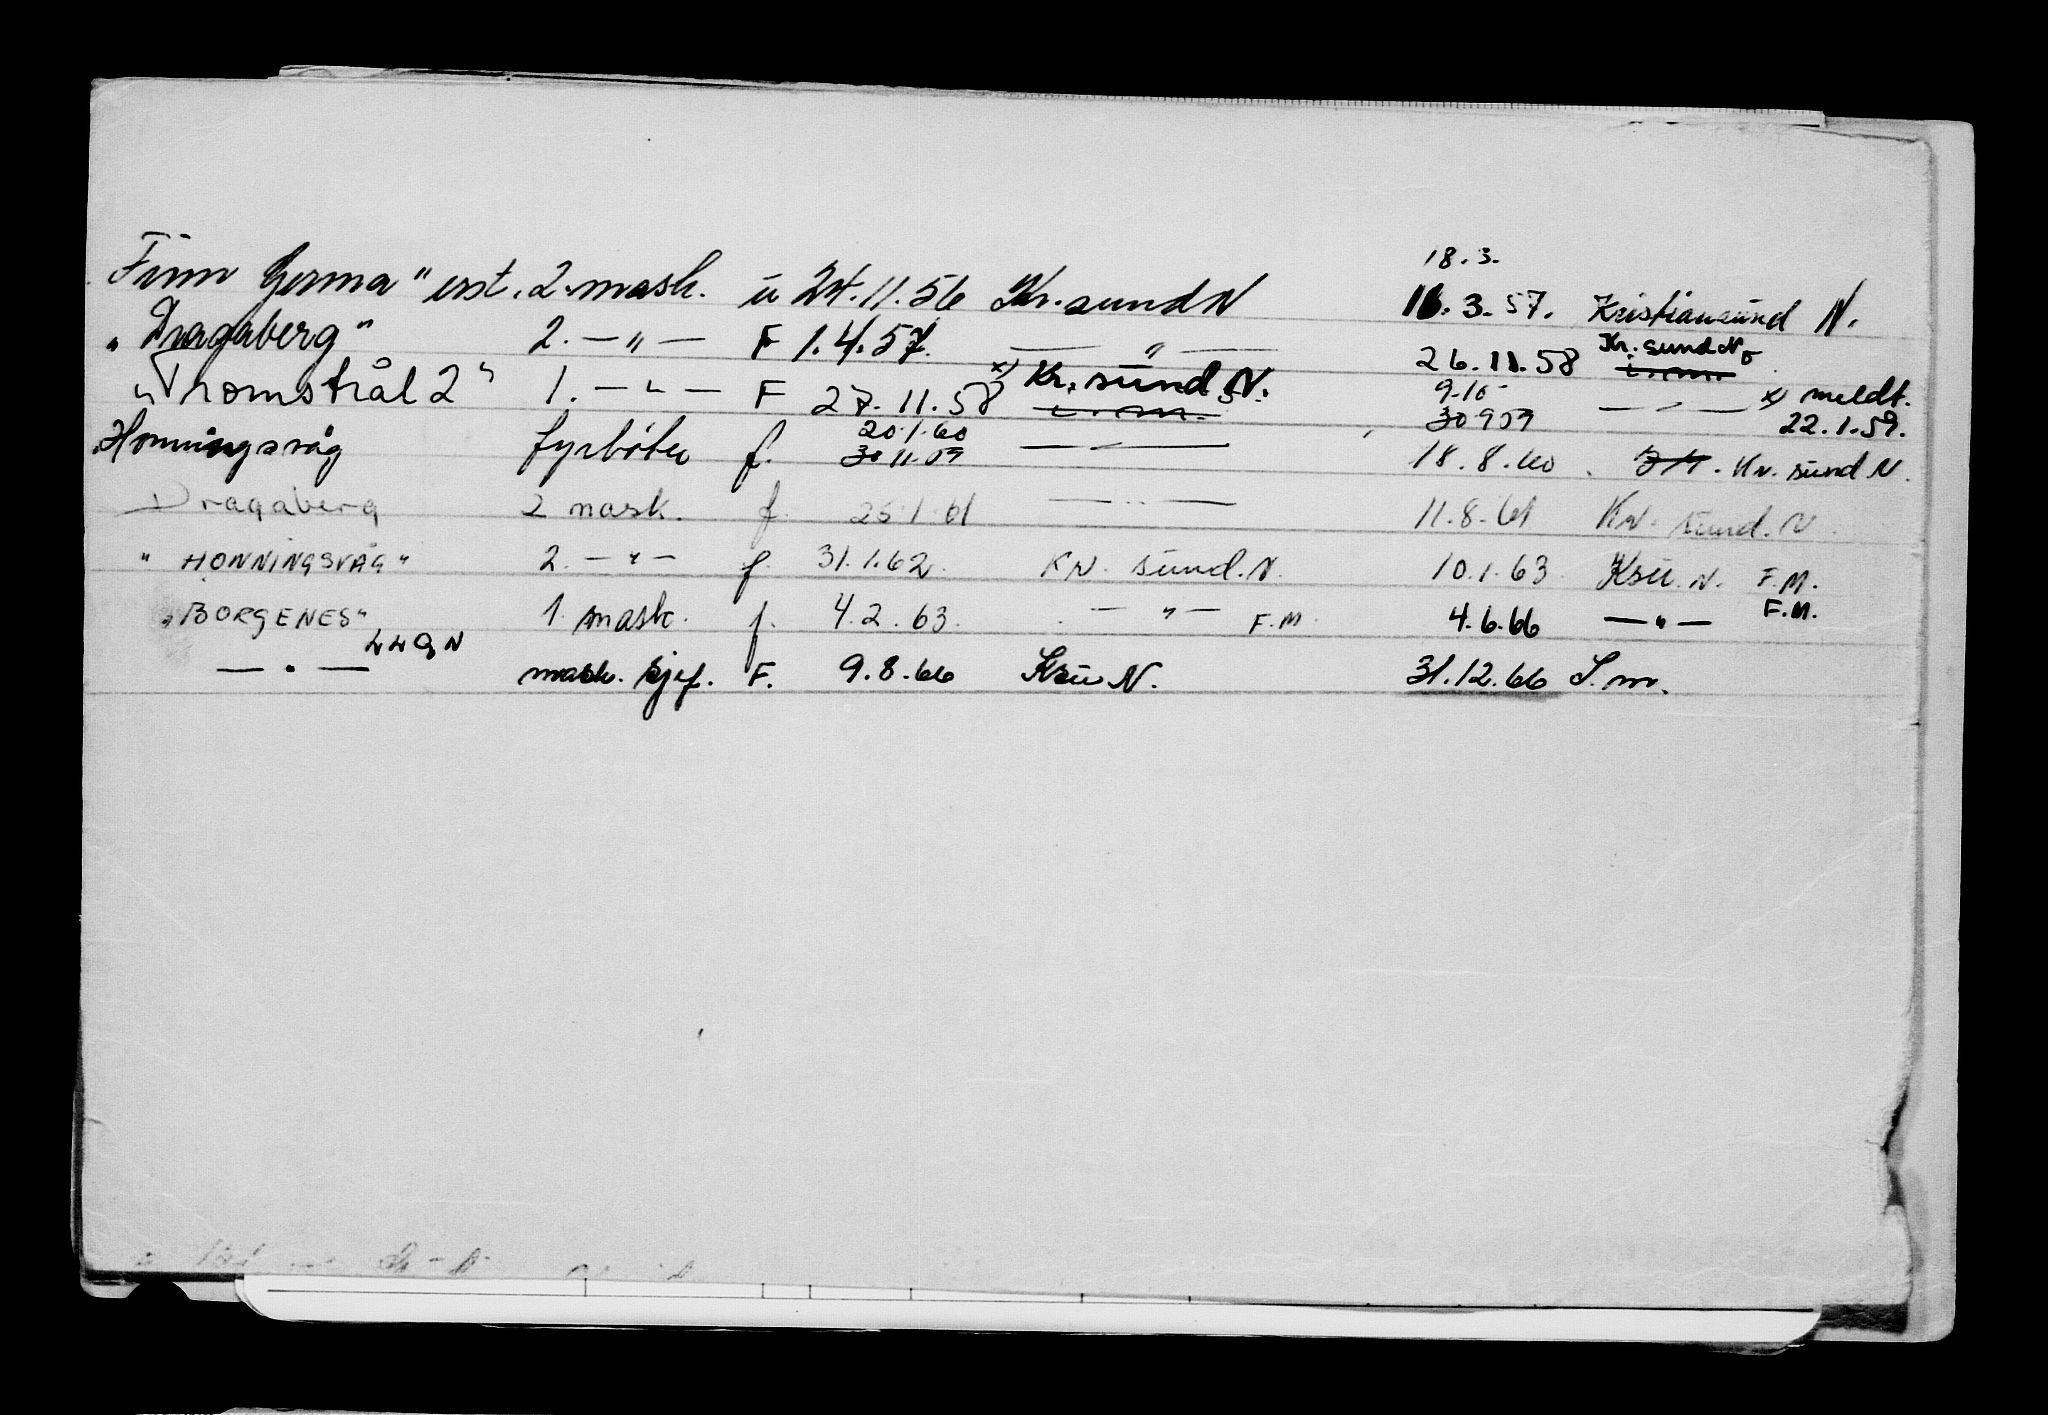 18.3.
Finn Gorma" ist. 2. mask. u 24.11.56 Kr.sund N 16.3.57. Kristiansund N.
"Dragaberg" 2. — " — F 1.4.57. — " — 26.11.58 Kr. sund N. i.m.
"Tromstrål 2" 1. — " — F 27.11.58 x) Kr. sund. N. i.m. 9.10 30 9 59 — " — x) meldt. 22.1.59.
Honningsvåg fyrbøter f. 20.1.60 30 11.59 — " — 18.8.60. Kr. sund N.
Dragaberg 2 mask. f. 25.1.61 — " — 11.8.61 Kr. sund. N.
"HONNINGSVÅG" 2. — " — f. 31.1.62. Kr. sund. N. 10.1.63 Ksu. N. F.M.
"BORGENES" 1. mask. f. 4.2.63. — " — F.M. 4.6.66 — " — F.M.
LLQN
— " — mask. sjef. F. 9.8.66 Ksu N. 31.12.66 S.m.